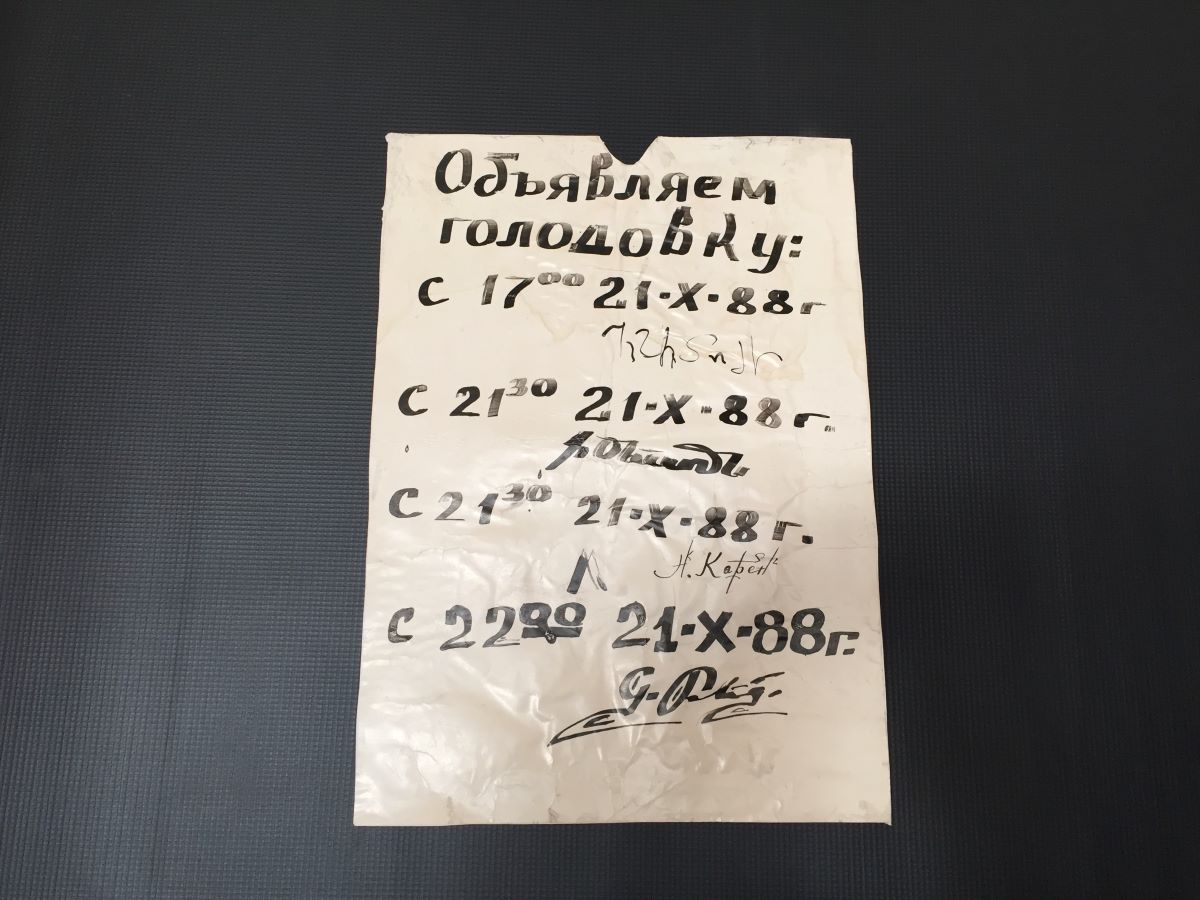 Объявляем
голодовку:
с 17⁰⁰ 21-X-88г
с 21³⁰ 21-X-88 г.
с 21³⁰ 21-X-88 г.
Н. Карен
с 22⁰⁰ 21-X-88г.